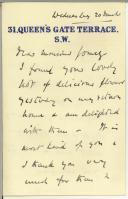 Wednesday 20 March
31, QUEEN'S GATE TERRACE.
S.W.
Dear
I found your lovely
lot of delicious flowers
yesterday on my return
home & am delighted
with them - It is
most kind of you &
I thank you very
much for them &